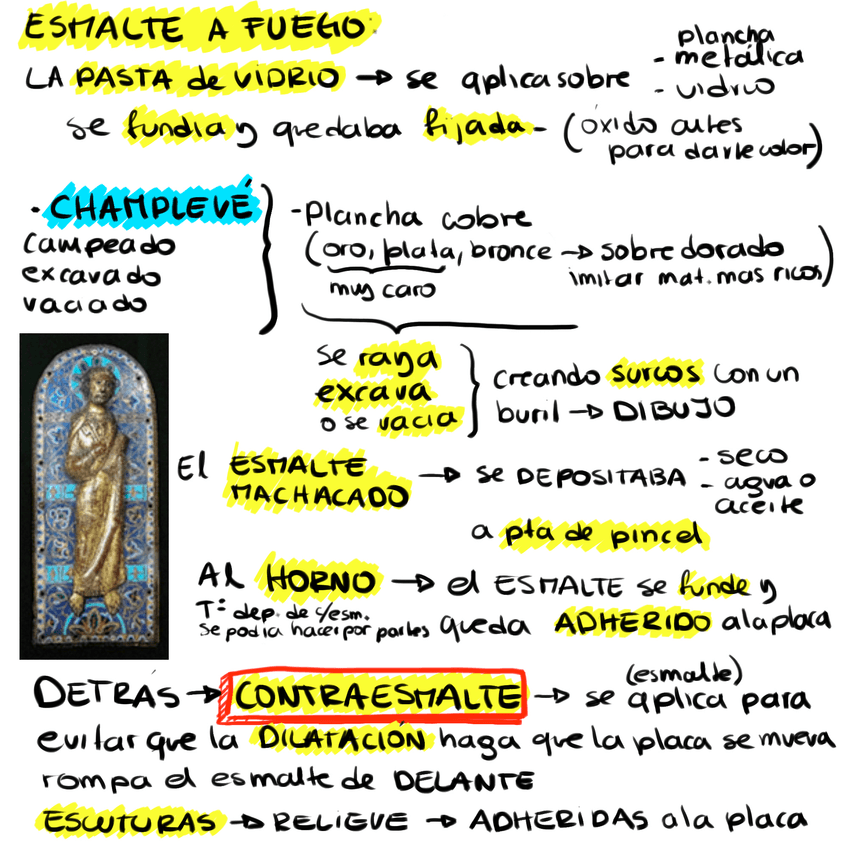 ESMALTE A FUEGO
LA PASTA de VIDRIO → se aplica sobre - plancha metálica
- vidrio
se fundía y quedaba fijada - (óxido antes
para darle color)
· CHAMPLEVÉ
campeado
excavado
vaciado
- Plancha cobre
(oro, plata, bronce → sobre dorado
muy caro
imitar mat. mas ricos)
se raya
excava
o se vacia
creando surcos con un
buril → DIBUJO
El ESMALTE
MACHACADO → se DEPOSITABA
- seco
- agua o
aceite
a pta de pincel
Al HORNO → el ESMALTE se funde y
Tª dep. de c/esm.
se podia hacer por partes
queda ADHERIDO a la placa
DETRÁS → CONTRAESMALTE → se aplica para
(esmalte)
evitar que la DILATACIÓN haga que la placa se mueva
rompa el esmalte de DELANTE
ESCUTURAS → RELIEVE → ADHERIDAS a la placa